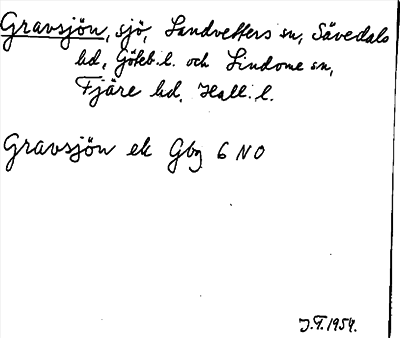 Gravsjön, sjö, Landvetters sn, Sävedals
hd, Göteb. l. och Lindome sn,
Fjäre hd, Hall. l.
Gravsjön ek Gbg 6 NO
J.F. 1954.